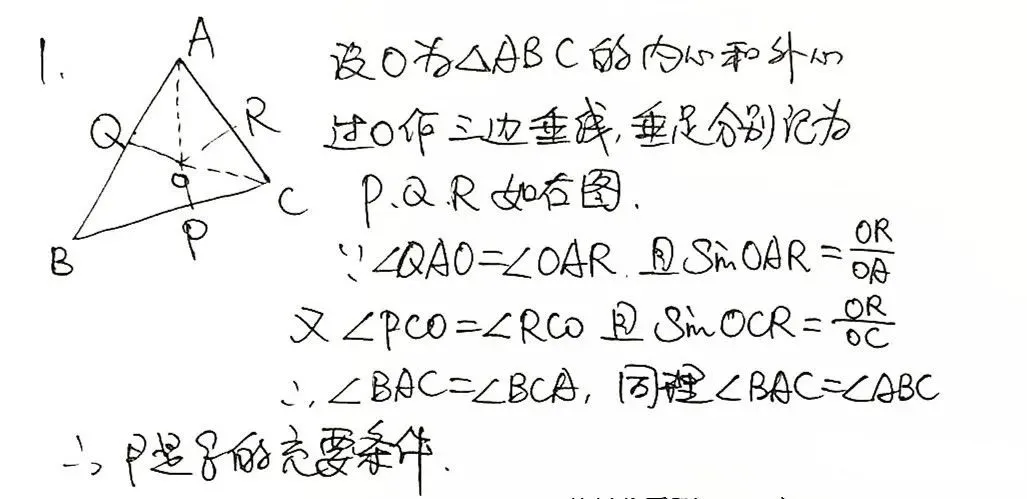 1.
A
Q
R
O
C
P
B
设O为△ABC的内心和外心
过O作三边垂线,垂足分别记为
P.Q.R 如右图.
∵∠QAO=∠OAR 且 SinOAR=OR/OA
又∠PCO=∠RCO 且 SinOCR=OR/OC
∴∠BAC=∠BCA, 同理∠BAC=∠ABC
∴ P是q的充要条件.